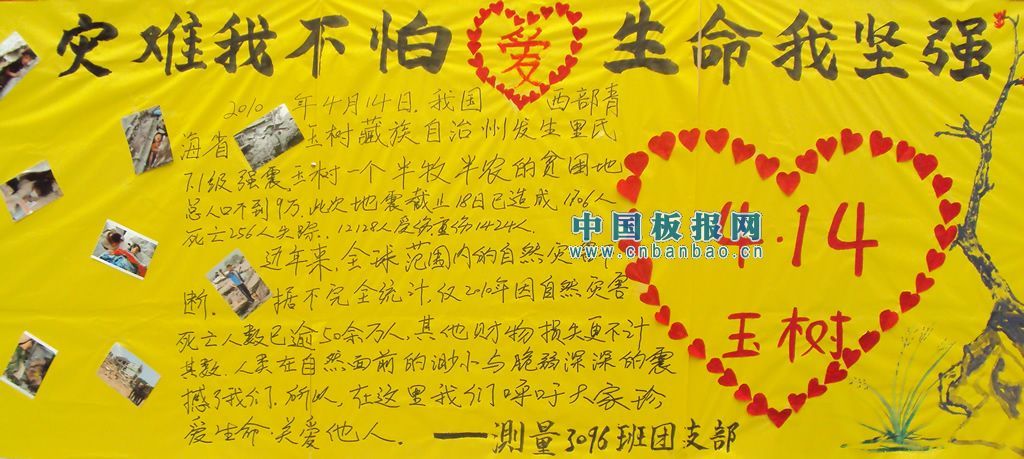 灾难我不怕 爱 生命我坚强
2010年4月14日，我国西部青
海省玉树藏族自治州发生里氏
7.1级强震，玉树一个半牧半农的贫困地
总人口不到9万，此次地震截止18日已造成1706人
死亡256人失踪，12128人受伤重伤1424人。
近年来，全球范围内的自然灾
断。据不完全统计，仅2010年因自然灾害
死亡人数已逾50余万人，其他财物损失更不计
其数。人类在自然面前的渺小与脆弱深深的震
撼了我们。所以，在这里我们呼吁大家珍
爱生命·关爱他人。
——测量3096班团支部
4·14
玉树
中国板报网
www.cnbanbao.cn